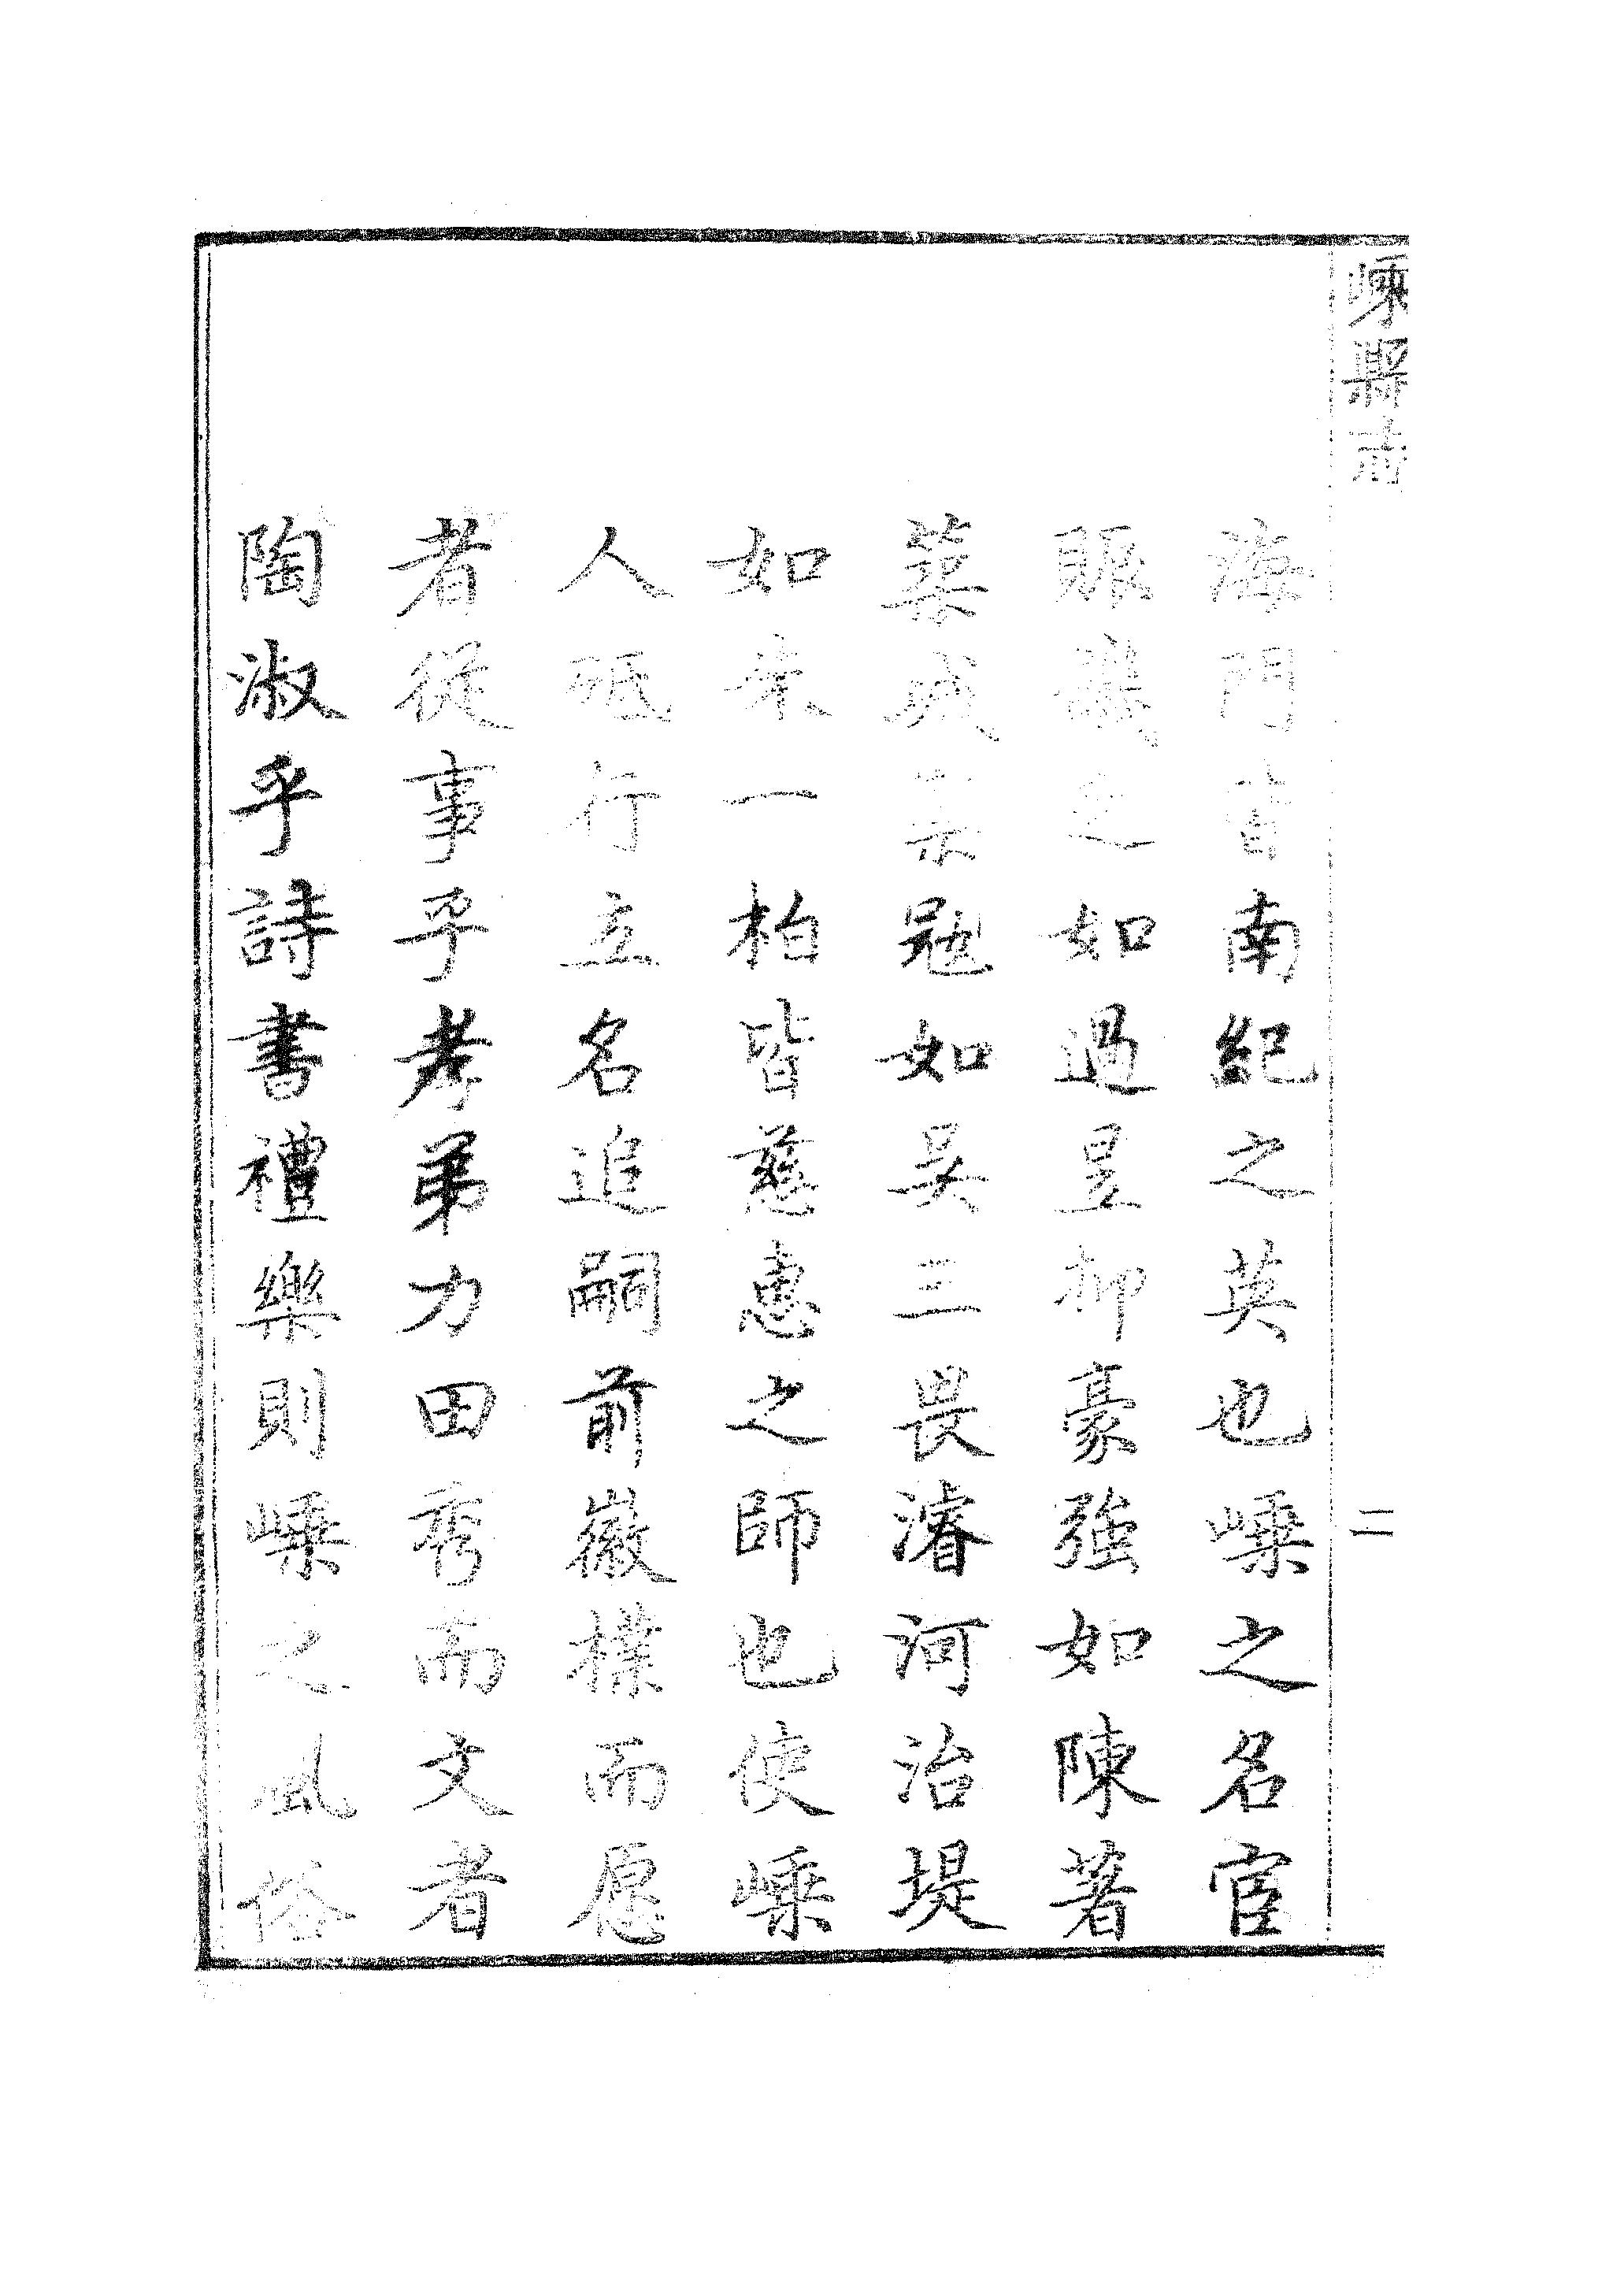 嵊縣志
二
海門皆南紀之英也嵊之名宦
賑饑之如過昱抑豪強如陳著
築城禦寇如吳三畏濬河治堤
如朱一柏皆慈惠之師也使嵊
人砥行立名追嗣前徽樸而愿
者從事乎孝弟力田秀而文者
陶淑乎詩書禮樂則嵊之風俗